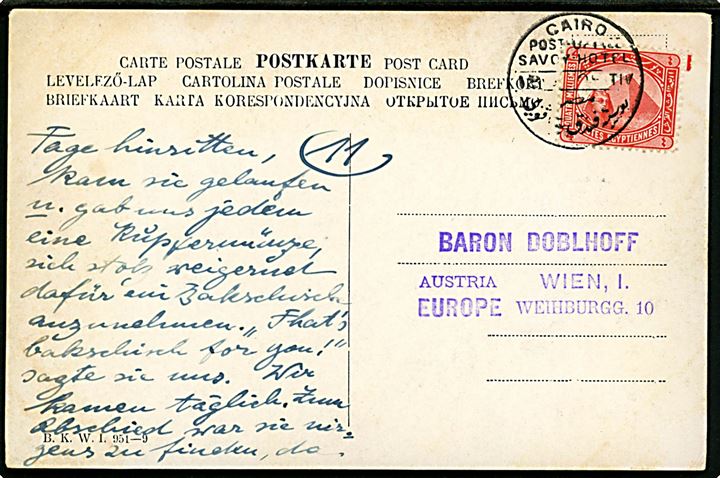 CARTE POSTALE POSTKARTE POST CARD
LEVELEZŐ-LAP CARTOLINA POSTALE DOPISNICE BREFKORT
BRIEFKAART KARTA KORESPONDENCYJNA ОТКРЫТОЕ ПИСЬМО
CAIRO
SAVOY HOTEL
POSTES EGYPTIENNES
11
Tage hinritten,
kam sie gelaufen
u. gab uns jedem
eine Kupfermünze,
sich stolz weigernd
dafür ein Bakschisch
anzunehmen. „That's
bakschisch for you!"
sagte sie uns. Wir
kamen täglich. Zum
Abschied war sie nir=
gens zu finden, da.
BARON DOBLHOFF
AUSTRIA WIEN, I.
EUROPE WEIHBURGG. 10
B. K. W. I. 951—9